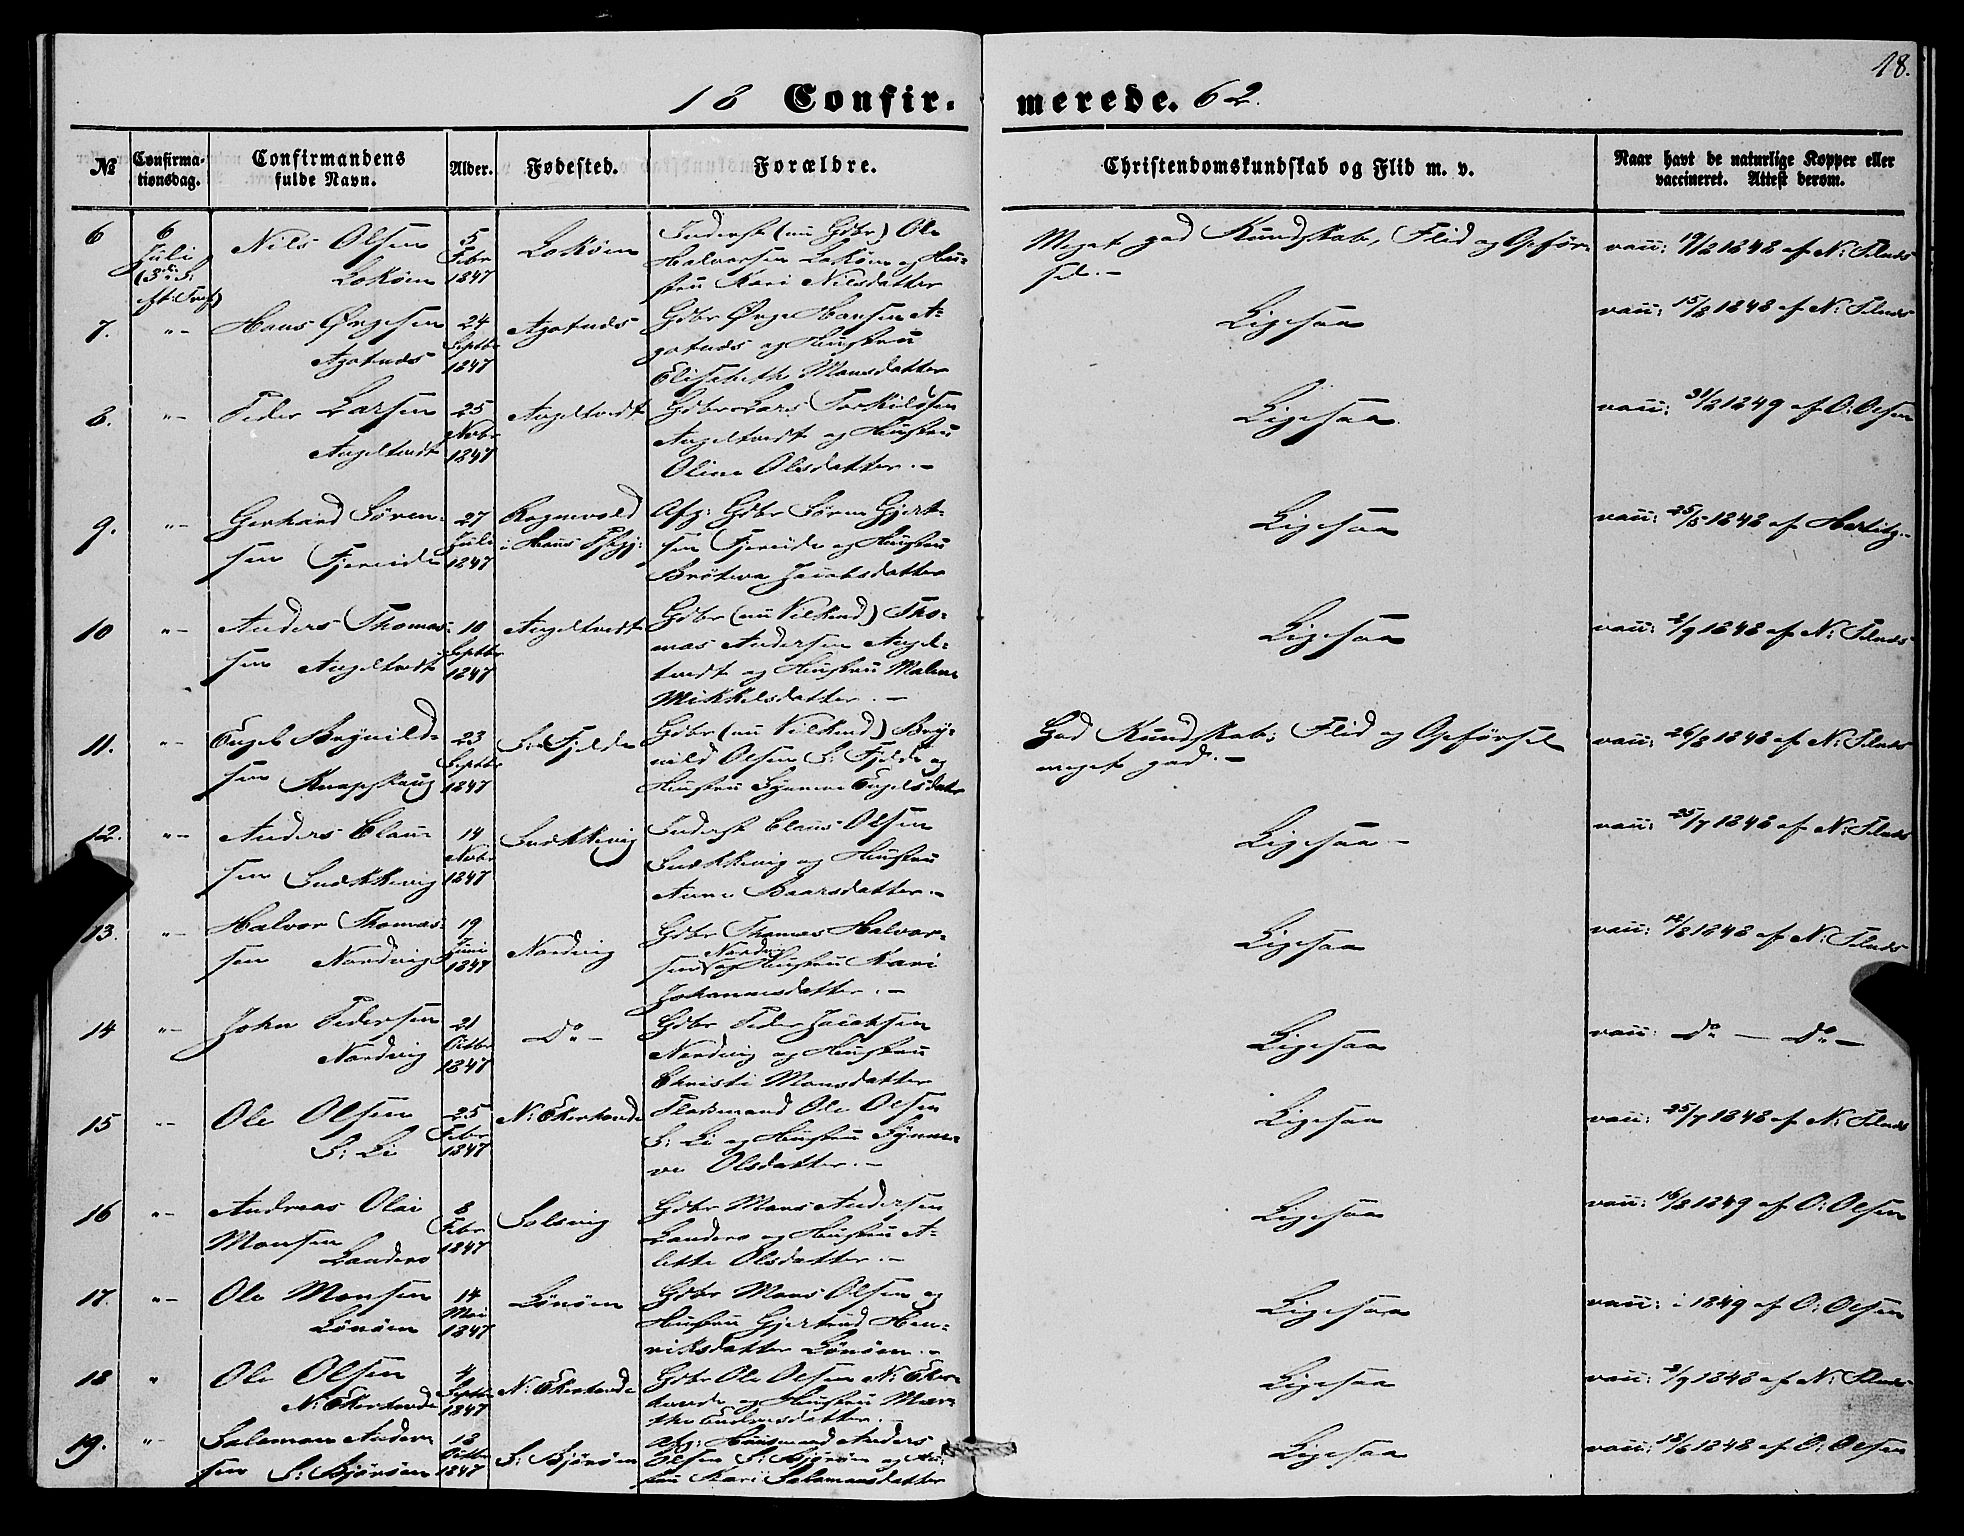 18.
18 Confir- merede. 62.
№ Confirma-tionsdag. Confirmandens fulde Navn. Alder. Fødested. Forældre. Christendomskundskab og Flid m. v. Naar havt de naturlige Kopper eller vaccineret. Attest derom.
6 6 Juli Nils Olsen Lokøen 5 Febr 1847 Lokøen Inderst (nu Gdbr) Ole Halvorsen Lokøen og Hustru Kari Nilsdatter Meget god Kundskab, Flid og Opførsel.- vacc: 19/2 1848 af N:
7. "- Hans Ørgesen Agotnæs 24 Septbr 1847 Agotnæs Gdbr Ørge Hansen Agotnæs og Hustru Elisabeth Monsdatter Ligesaa vacc: 15/8 1848 af N:
8. "- Peder Larsen Angeltvedt 25 Novbr 1847 Angeltvedt Gdbr Lars Torkildsen Angeltvedt og Hustru Oline Olsdatter.- Ligesaa vacc: 1849 af O: Olsen
9. "- Gerhard Sørensen Fjereide 27 Juli 1847 i Hans Afg: Gdbr Søren Gjertsen Fjereide og Hustru Jacobsdatter Ligesaa vacc: 25/5 1848 af
10 "- Anders Thomassen Angeltvedt 10 Septbr 1847 Angeltvedt Gdbr (nu Vilkaarsmand) Thomas Andersen Angeltvedt og Hustru Malene Mikkelsdatter.- Ligesaa vacc: 2/9 1848 af N:
11. "- Engel Brynildsen Knapskaug 23 Septbr 1847 S: Fjelde Gdbr Brynild Olsen S: Fjelde og Hustru Synneve Engelsdatter God Kundskab; Flid og Opførsel meget god.- vacc: 26/8 1848 af N:
12. "- Anders Clausen Snekkevig 14 Novbr 1847 Snekkevig Inderst Claus Olsen Snekkevig og Hustru Anne Baarsdatter.- Ligesaa- vacc: 25/7 1848 af N:
13. "- Halvor Thomassen Nordvig 19 Juni 1847 Nordvig Gdbr Thomas Halvorsen Nordvig og Hustru Kari Johannesdatter.- Ligesaa vacc: 12/8 1848 af N:
14 "- John Pedersen Nordvig 21 Octbr 1847 Do- Gdbr Peder Jacobsen Nordvig og Hustru Christi Monsdatter Ligesaa vacc: Do - Do-
15 "- Ole Olsen S: Li 25 Febr 1847 N: Ekerhovde Pladsmand Ole Olsen S: Li og Hustru Synneve Olsdatter.- Ligesaa vacc: 25/7 1848 af N:
16 "- Andreas Olai Monsen Landero 8 Febr 1847 Solsvig Gdbr Mons Andersen Landero og Hustru Alette Olsdatter.- Ligesaa vacc: 16/8 1849 af O: Olsen
17. "- Ole Monsen Lønøen 14 Mai 1847 Lønøen Gdbr Mons Olsen og Hustru Gjertrud Henriksdatter Lønøen.- Ligesaa vacc: i 1849 af O: Olsen
18 " Ole Olsen N: Ekerhovde 4 Septbr 1847 N: Ekerhovde Gdbr Ole Olsen N: Ekerhovde og Hustru Marthe Ligesaa vacc: 2/9 1848 af N:
19. "- Salomon Andersen S: Bjørøen 18 Octbr 1847 S: Bjørøen Afg: Huusmand Anders Olsen S: Bjørøen og Hustru Kari Salomonsdatter Ligesaa vacc: 1848 af O: Olsen